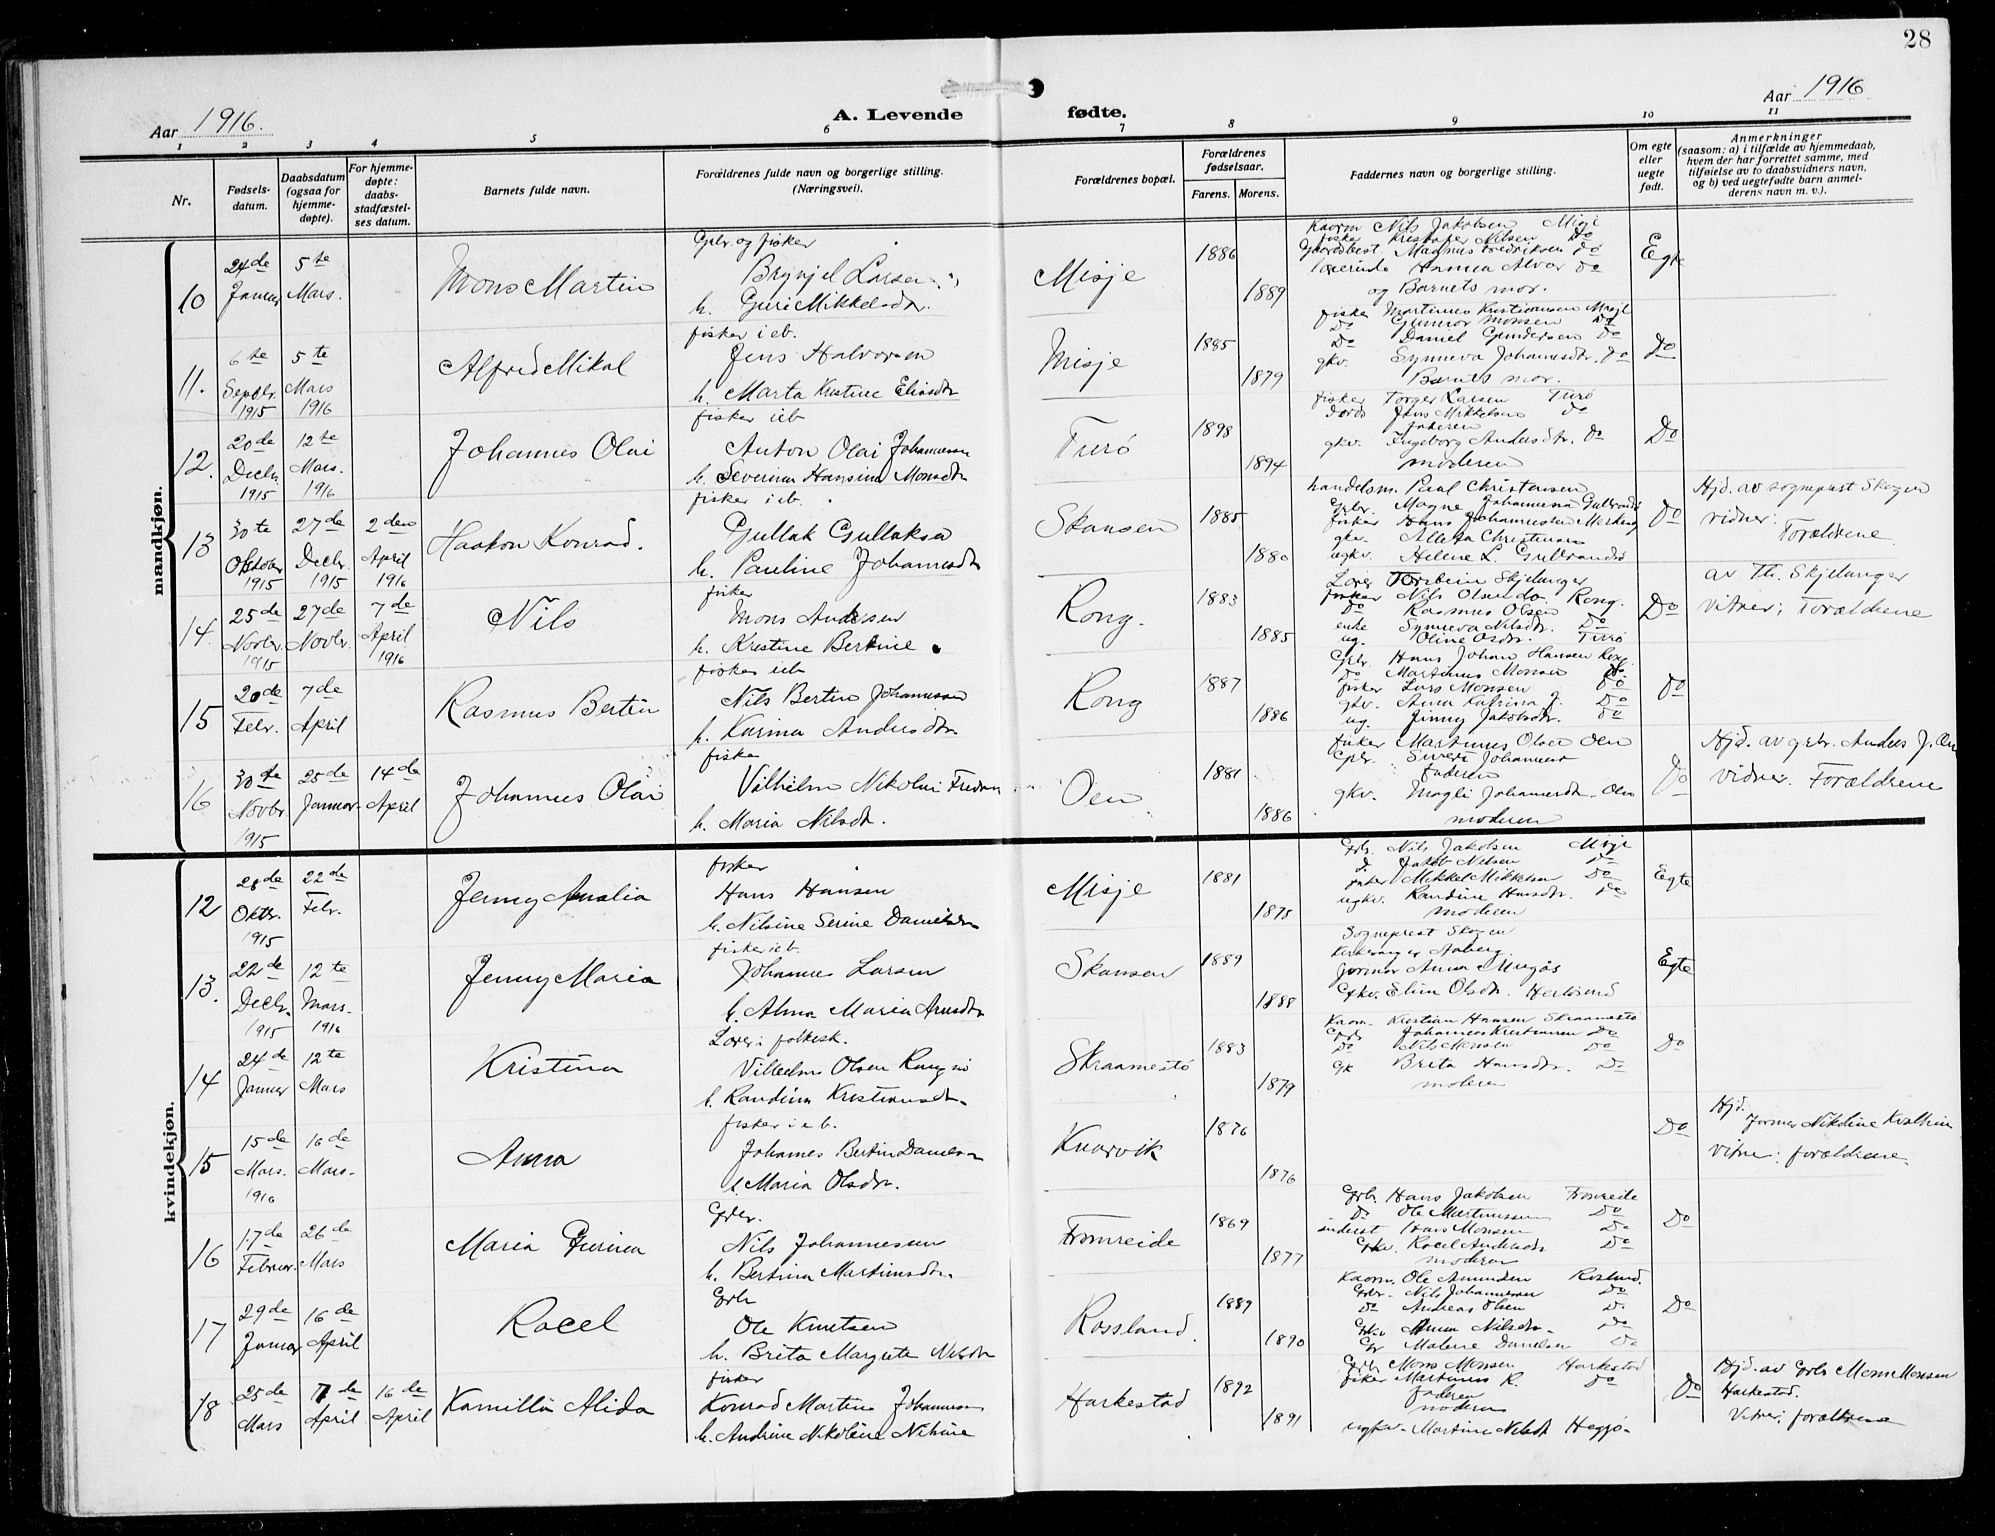 28
Aar 1916.
A. Levende fødte.
Aar 1916
1 2 3 4 5 6 7 8 9 10 11
Nr.
Fødsels-
datum.
Daabsdatum
(ogsaa for
hjemme-
døpte).
For hjemme-
døpte:
daabs
stadfæstel-
ses datum.
Barnets fulde navn.
Forældrenes fulde navn og borgerlige stilling.
(Næringsvei).
Forældrenes bopæl.
Forældrenes
fødselsaar.
Farens. Morens.
Faddernes navn og borgerlige stilling.
Om egte
eller
uegte
født.
Anmerkninger
(saasom: a) i tilfælde av hjemmedaab,
hvem der har forrettet samme, med
tilføielse av to daabsvidners navn,
og b) ved uegtefødte barn anmel-
derens navn m. v.).
mandkjøn.
10
24de
Januar
5te
Mars.
Mons Martin
Grbr. og fisker
Brynjel Larsen
h. Guri Mikkelsdr.
Misje
1886
1889
Kaarm Nils Jakobsen Misje
fisker Kristofer Nilsen Do
Magnus Fredriksen Do
lærerinde Hanna Alver Do
og Barnets mor.
Egte
11.
6te
Septbr.
1915
5te
Mars
1916
Alfred Mikal
fisker i eb.
Jens Halvorsen
h. Marta Kristine Eliasdr
Misje
1885
1879
fisker Martinus Kristiansen Misje
Do Gunnar Monsen Do
Do Daniel Gundersen Do
gkv. Synneva Johannesdr. Do
Barnets mor.
Do
12.
20de
Decbr.
1915
12te
Mars.
1916
Johannes Olai
fisker i eb
Anton Olai Johannessen
h. Severina Hansine Monsdr
Turø
1898
1894
fisker Torger Larsen Turø
Jens Mikkelsen Do
faderen
gkv. Ingeborg Andersdtr. Do
moderen
Do
13
30te
Oktober
1915
27de
Decbr.
1915
2den
April
1916
Haakon Konrad.
fisker i eb.
Gullak Gullaksen
h. Pauline Johannesdr
Skansen
1885
1880
handelsm. Paul Christensen
Grbr. Magne Johannesen
fisker Hans Johannessen
gkv. Christensen
ugkv. Helene L.
Do
Hjd. av sogneprest Skogen
vidner:
Forældrene.
14.
25de
Novbr.
1915
27de
Novbr.
7de
April
1916
Nils
fisker
Mons Andersen
h. Kristine Bertine
Rong.
1883
1885
Lærer Torbein Skjelanger
fisker Nils Olsen do Rong.
Do Rasmus Olsen
enke Synneva Nilsdr. Do
ug. Oline Osdr. Turø
Do
av Th. Skjelanger
Vitner; Forældrene
15
20de
Febr.
7de
April
Rasmus Bertin
fisker i eb
Nils Bertin Johannessen
h. Karina Andersdtr
Rong
1887
1886
Grbr. Hans Johan Hansen Rong
Do Martinus Monsen Do
fisker Lars Monsen Do
gkv. Anna Katrina J. Do
ug. Jinny Jakobsdtr. Do
Do
16
30te
Novbr
1915
25de
Januar
14de
April
Johannes Olai
fisker
Vilhelm Nikolai
h. Maria Nilsdr.
Oen
1881
1886
fisker Martinus Olsen Oen
Grbr. Sivert Johannesen
faderen
gkv. Magli Johannesdr. Oen
moderen
Do
Hjd. av grbr. Anders J. Oen
vidner. Forældrene
kvindekjøn.
12
28de
Oktbr.
1915
22de
Febr.
Jenny Amalia
fisker
Hans Hansen
h. Nilsine Serine Danielsdr
Misje
1881
1875
Grbr. Nils Jakobsen Misje
Jakob Nilsen Do
fisker Mikkel Mikkelsen Do
ugkv. Randine Hansdr. Do
moderen
Egte
13.
22de
Decbr.
1915
12te
Mars.
1916
Jenny Maria
fisker i eb
Johannes Larsen
h. Alma Maria Arnsdtr
Skansen
1889
1888
Sogneprest Skogen
Kirkesanger Aaberg.
Jormor Anna Mugaas
Gkv. Elina Olsdr. Herløsund
Egte
14
24de
Januar
12te
Mars
Kristina
Lærer i folkesk.
Vilhelm Olsen
h. Randina Kristiansdr.
Skraamestø
1883
1879
Kaarm. Kristian Hansen Skraamestø
Grbr Johannes Kristiansen Do
Do Nils Monsen Do
Gk Brita Hansdr. Do
moderen
Do
15
15de
Mars.
1916
16de
Mars.
Anna
fisker i eb.
Johannes Bertin Danielsen
h. Maria Olsdr.
Knarvik
1876
1876
Do
Hjd.
Jormor Nikoline Kvalheim
Vitne: forældrene.
16
17de
Februar.
26de
Mars
Maria Gurina
Grbr.
Nils Johannessen
h. Bertina Martinusdr.
Fromreide
1869
1877
Grbr. Hans Jakobsen Fromreide
Do Ole Martinussen Do
inderst Hans Monsen Do
Gkv. Racel Andersdr Do
moderen
Do
17
29de
Januar
16de
April
Racel
Grbr
Ole Knutsen
h. Brita Margrete Nilsdr
Rossland.
1889
1890
Kaarm. Ole Amundsen Rosland.
Grbr. Nils Johannesen Do
Do Andreas Olsen Do
Gkv Anna Nilsdr. Do
Malene Danielsen Do
Do
18
25de
Mars
7de
April
16de
April
Kamilla Alida
fisker
Konrad Martin Johannesen
h. Andrine Nikoline Nilsine
Harkestad
1892
1891
Grbr Mons Monsen Harkestad
fisker Martinus K. Do
faderen
moderen
ugkv. Martine Nilsdr Heggø.
Do
Hjd. av Grbr Mons Monsen
Harkestad.
Vitner; forældrene